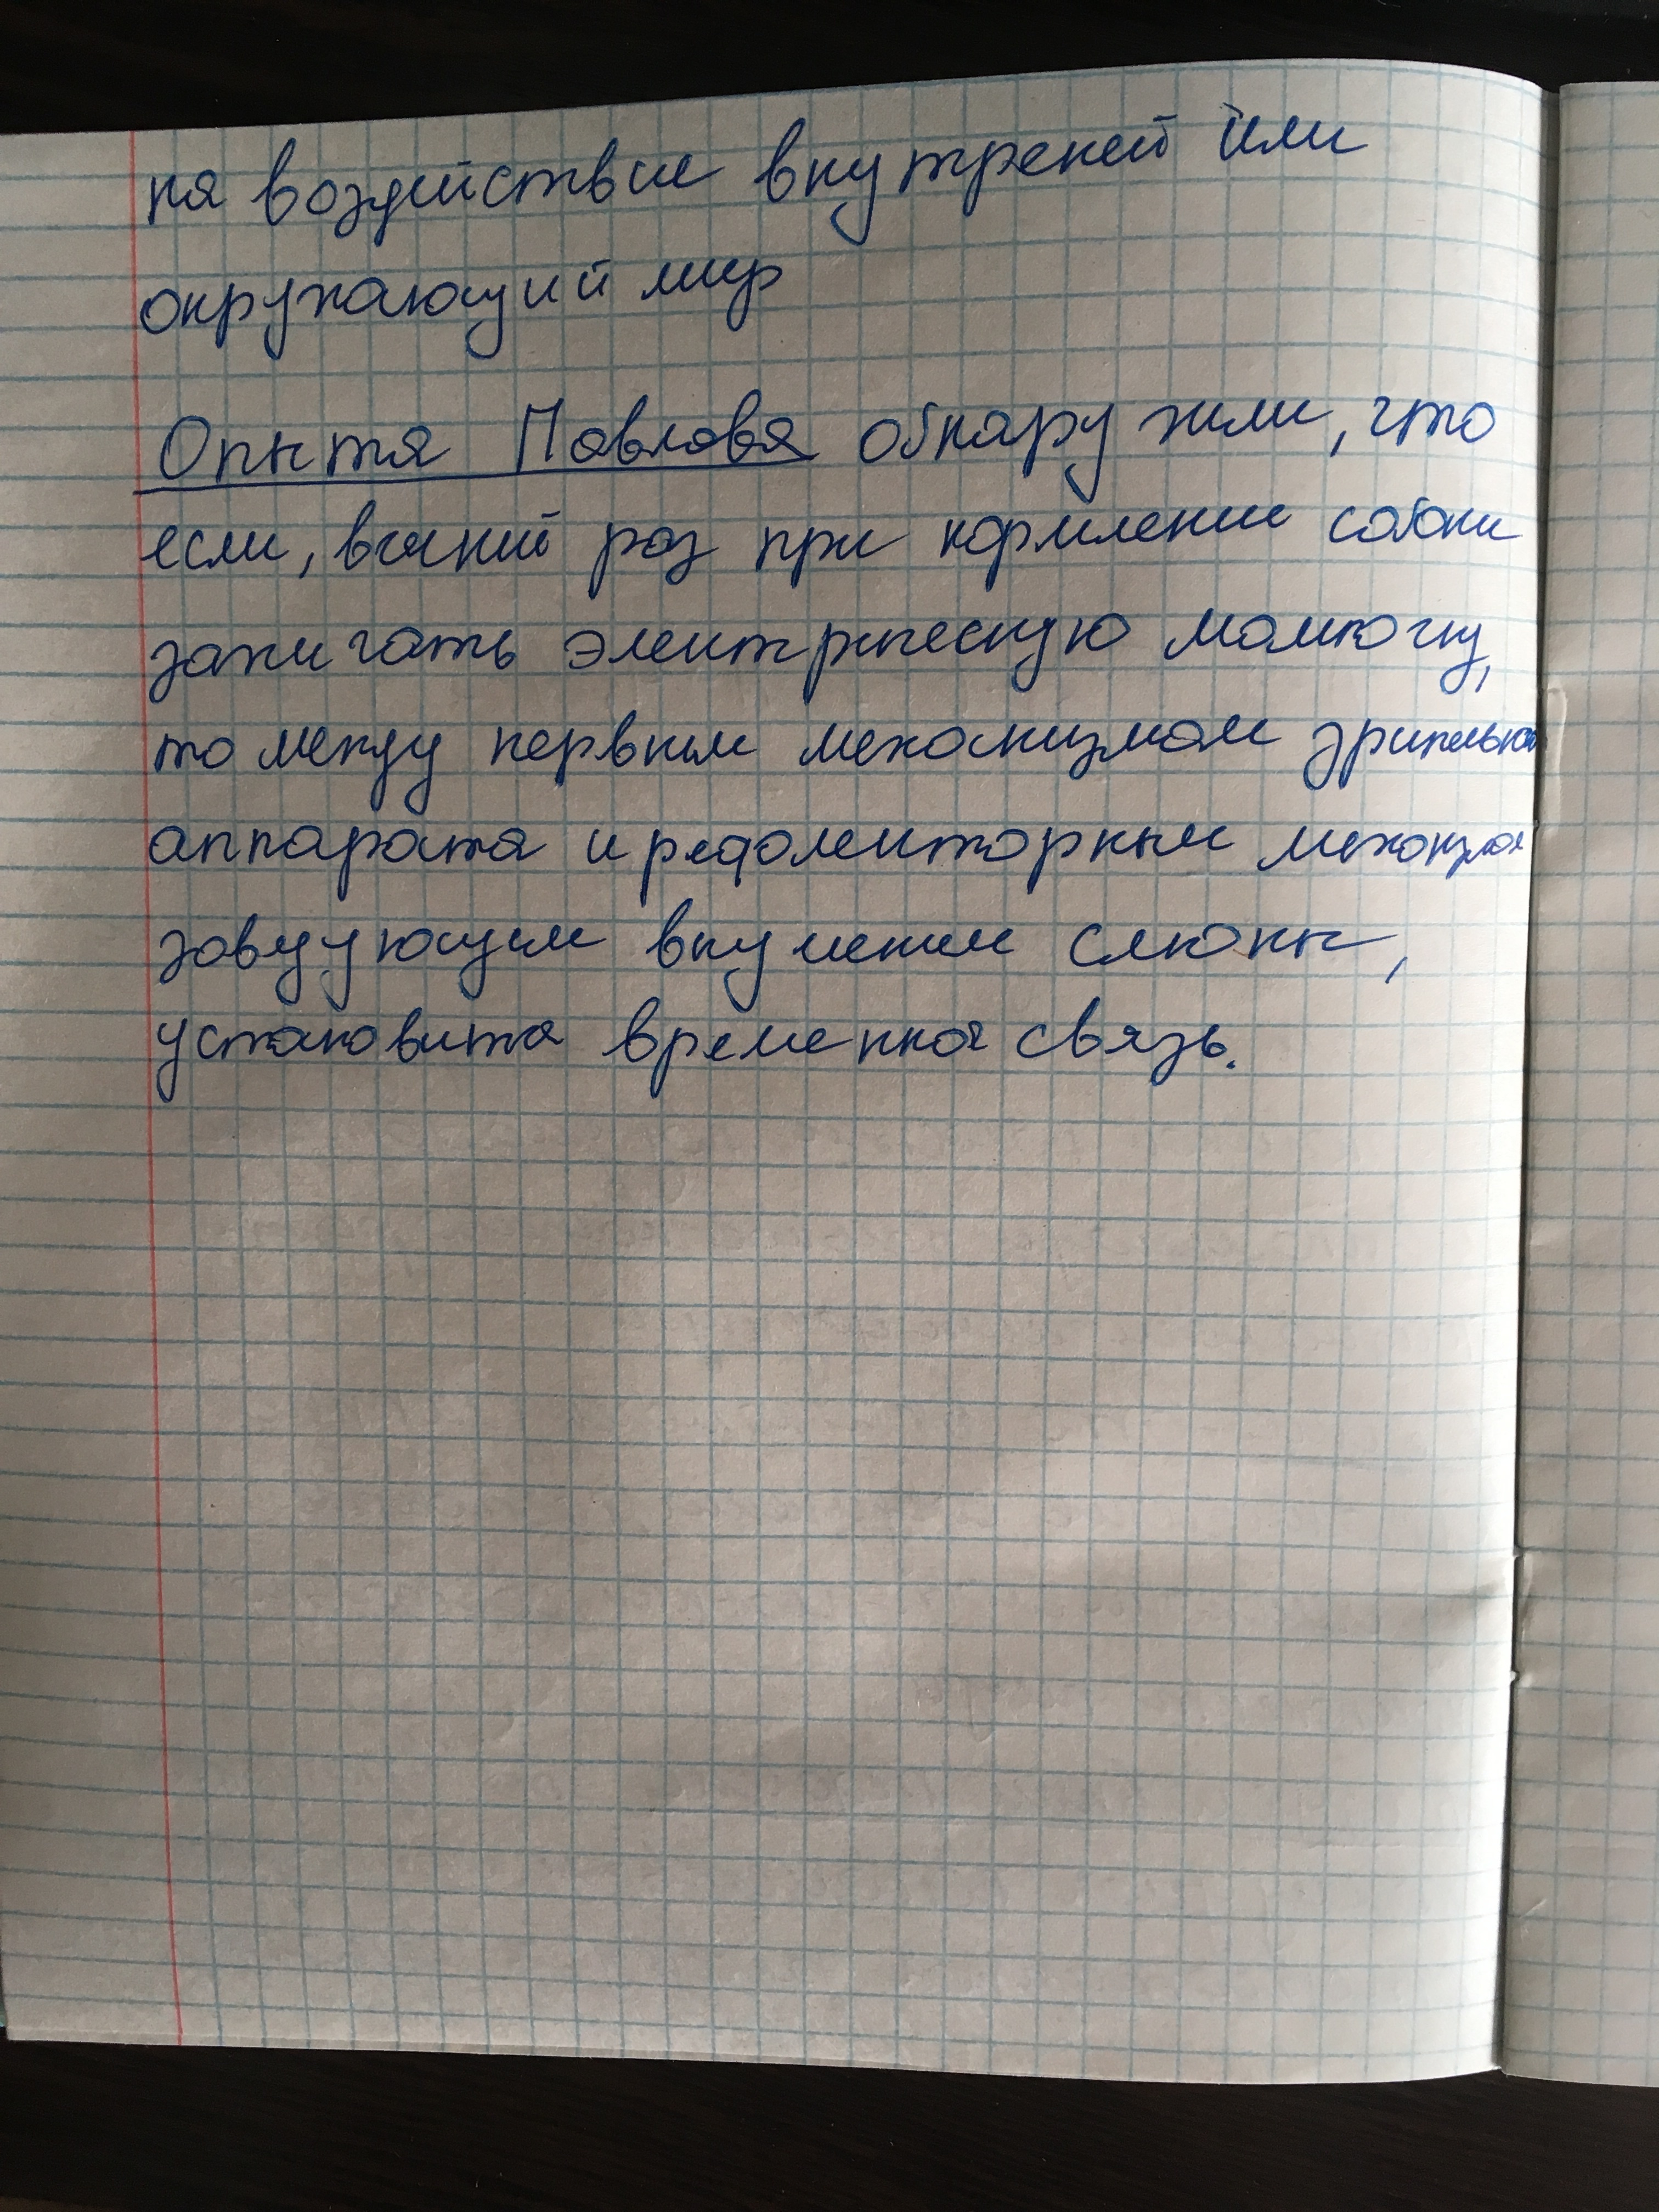 на воздействие внутреней или
окружающий мир
Опыта Павлова обнаружили, что
если, всякий раз при кормление собаки
зажигать электрическую лампочку,
то между нервным механизмом зрительного
аппарата и рефлекторным механизмом
заведующем внушением слюны,
установита временная связь.